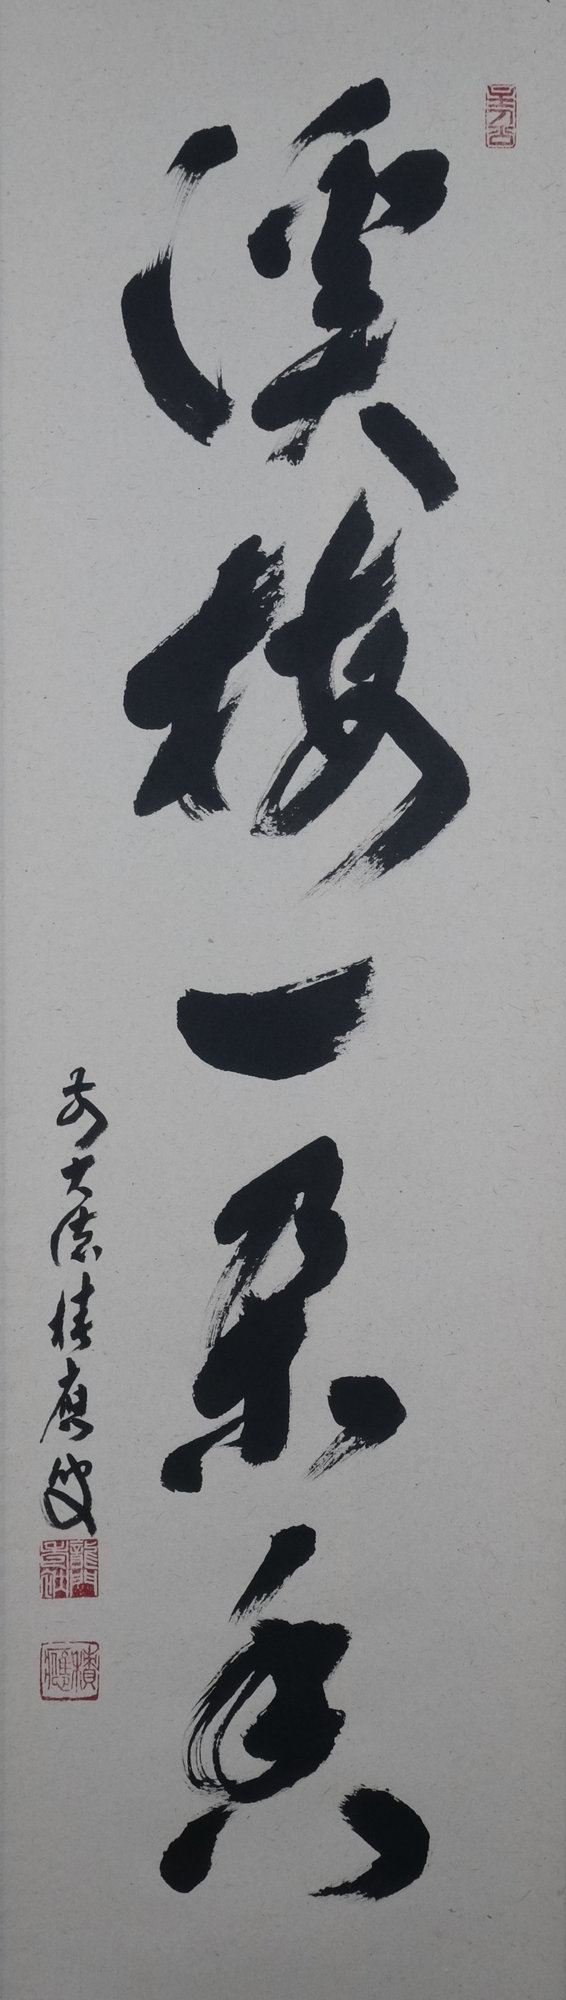 渓梅一朶香
前大徳積應叟
龍門
積應